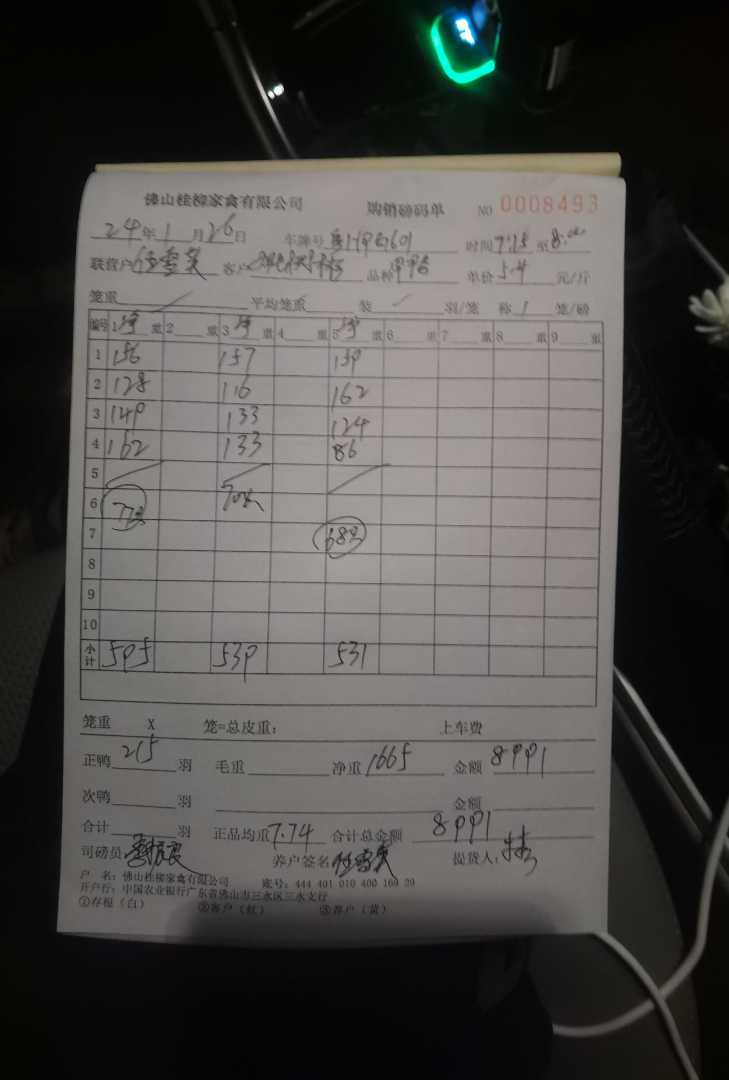 佛山桂柳家禽有限公司 购销磅码单 NO 0008493
24年1月26日 车牌号 时间7:15至8:00
联营户 任雪英 客户 品种 单价5.4元/斤
笼重 平均笼重 装 羽/笼 称1笼/磅
编号 1净重 2重 3净重 4重 5净重 6重 7重 8重 9重
1 156 157 159
2 128 116 162
3 149 133 124
4 162 133 86
5
6 77只 70只
7 68只
8
9
10
小计 595 539 531
笼重 X 笼=总皮重: 上车费
正鸭 215 羽 毛重 净重 1665 金额 8991
次鸭 羽 金额
合计 羽 正品均重 7.74 合计总金额 8991
司磅员: 养户签名 任雪英 提货人:
户 名:佛山桂柳家禽有限公司 账号:444 401 010 400 169 29
开户行:中国农业银行广东省佛山市三水区三水支行
①存根(白) ②客户(红) ③养户(黄)